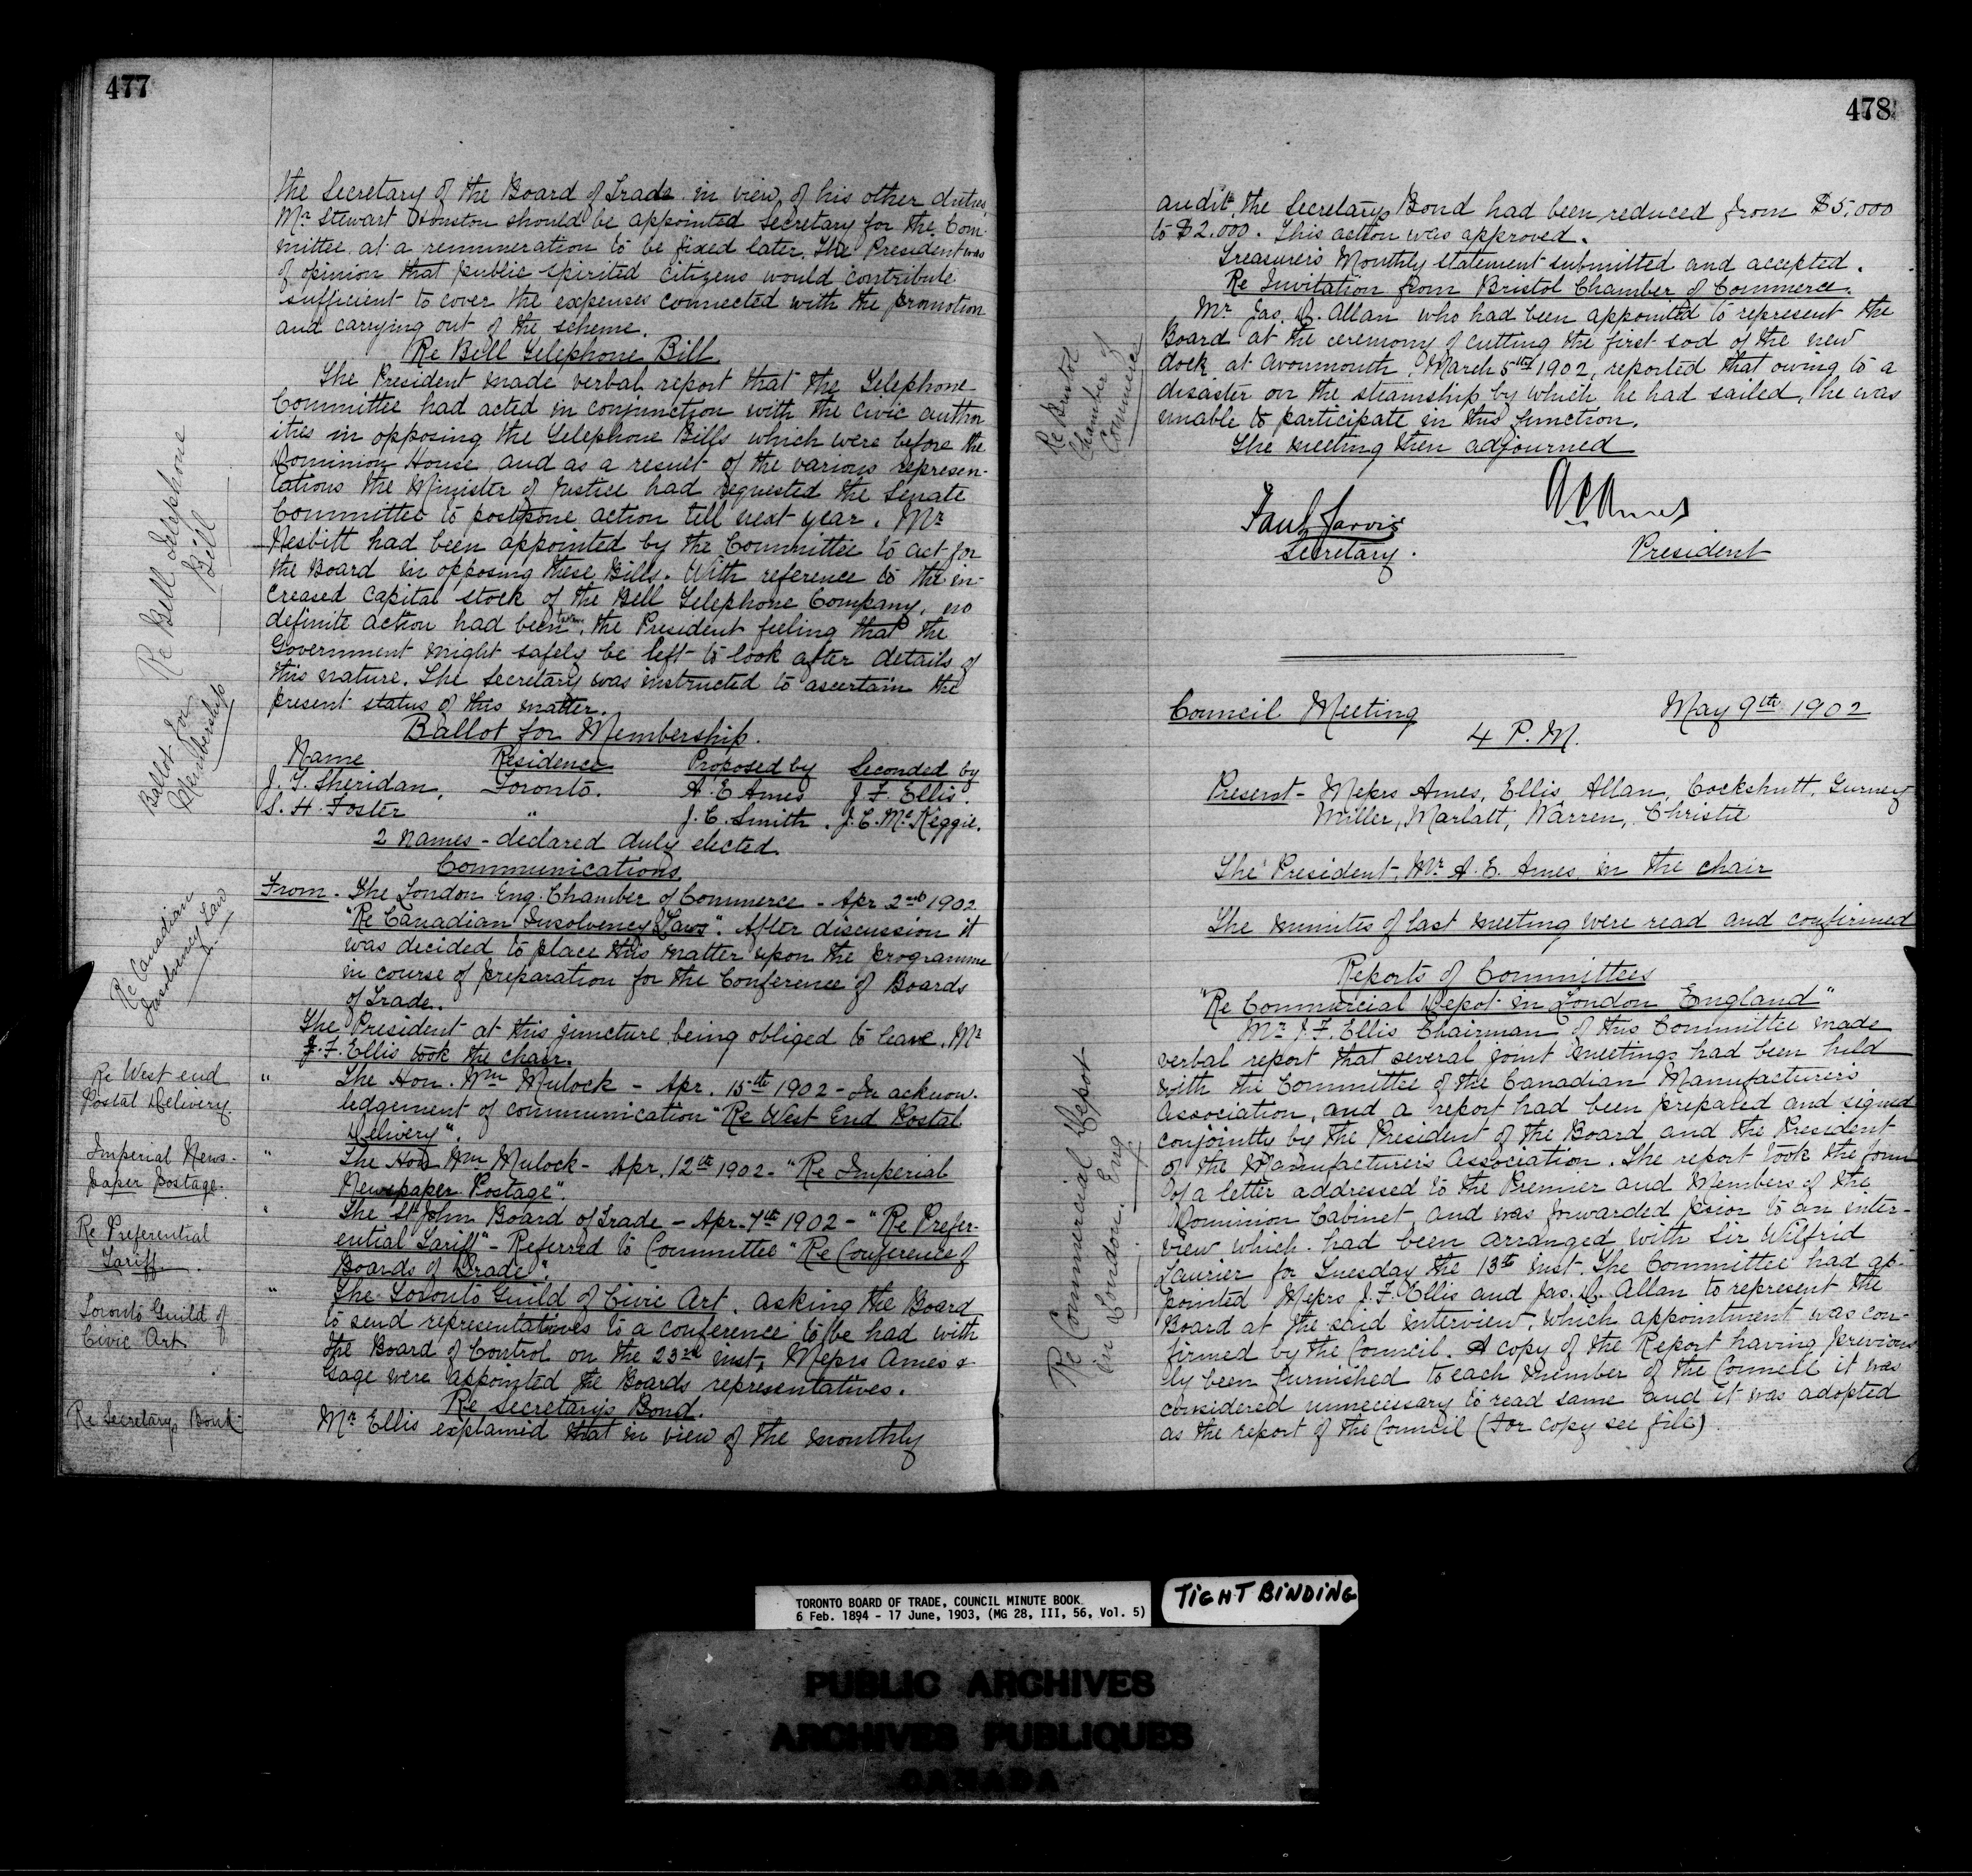 477
the Secretary of the Board of Trade in view of his other duties,
Mr Stewart Houston should be appointed Secretary for the Com-
mittee at a remuneration to be fixed later. The President was
of opinion that public spirited citizens would contribute
sufficient to cover the expenses connected with the promotion
and carrying out of the scheme.
Re Bell Telephone Bill
Re Bell Telephone
Bill
The President made verbal report that the Telephone
Committee had acted in conjunction with the Civic author
ities in opposing the Telephone Bills which were before the
Dominion House and as a result of the various represen-
tations the Minister of Justice had requested the Senate
Committee to postpone action till next year. Mr
Nesbitt had been appointed by the Committee to act for
the Board in opposing these Bills. With reference to the in-
creased Capital stock of the Bell Telephone Company, no
definite action had been taken, the President feeling that the
Government might safely be left to look after details of
this nature. The Secretary was instructed to ascertain the
present status of this matter.
Ballot for
Membership
Ballot for Membership.
Name Residence Proposed by Seconded by
J. T. Sheridan, Toronto. A. E Ames J. F. Ellis.
S. H. Foster " J. C. Smith. J. C. McKeggie.
2 names - declared duly elected.
Communications
Re Canadian
Insolvency Law
From - The London Eng. Chamber of Commerce - Apr 2nd 1902
"Re Canadian Insolvency Laws". After discussion it
was decided to place this matter upon the programme
in course of preparation for the Conference of Boards
of Trade.
The President at this juncture being obliged to leave, Mr
J. F. Ellis took the chair.
Re West end
Postal Delivery.
" The Hon. Wm Mulock - Apr. 15th 1902 - In acknow-
ledgement of communication "Re West End Postal
Delivery".
Imperial News-
paper Postage.
" The Hon Wm Mulock - Apr. 12th 1902 - "Re Imperial
Newspaper Postage".
Re Preferential
Tariff.
" The St John Board of Trade - Apr. 7th 1902 - "Re Prefer-
ential Tariff" - Referred to Committee "Re Conference of
Boards of Trade".
Toronto Guild of
Civic Art.
" The Toronto Guild of Civic Art. asking the Board
to send representatives to a conference to be had with
the Board of Control on the 23rd inst, Messrs Ames &
Gage were appointed the Boards representatives.
Re Secretary's Bond.
Re Secretarys Bond
Mr Ellis explained that in view of the monthly
478
audit, the Secretarys Bond had been reduced from $5,000
to $2.000. This action was approved.
Treasurer's Monthly statement submitted and accepted.
Re Invitation from Bristol Chamber of Commerce.
Re Bristol
Chamber of
Commerce
Mr Jas. D. Allan who had been appointed to represent the
Board at the ceremony of cutting the first sod of the new
dock at Avonmouth, March 5th 1902, reported that owing to a
disaster on the steamship by which he had sailed, he was
unable to participate in this function.
The meeting then adjourned
Paul Jarvis
Secretary.
A E Ames
President
Council Meeting May 9th 1902
4 P.M.
Present - Messrs Ames, Ellis Allan, Cockshutt, Gurney
Miller, Marlatt, Warren, Christie
The President, Mr A. E. Ames in the chair
The minutes of last meeting were read and confirmed
Reports of Committees
"Re Commercial Depot in London England"
Re Commercial Depot
in London. Eng
Mr J. F. Ellis Chairman of this Committee made
verbal report that several joint meetings had been held
with the Committee of the Canadian Manufacturers
Association, and a report had been prepared and signed
conjointly by the President of the Board and the President
of the Manufacturers Association. The report took the form
of a letter addressed to the Premier and Members of the
Dominion Cabinet, and was forwarded prior to an inter-
view which had been arranged with Sir Wilfrid
Laurier for Tuesday the 13th inst. The Committee had ap-
pointed Messrs J. F. Ellis and Jas. D. Allan to represent the
Board at the said interview, which appointment was con-
firmed by the Council. A copy of the Report having previous
ly been furnished to each member of the Council it was
considered unnecessary to read same and it was adopted
as the report of the Council (For copy see file)
TORONTO BOARD OF TRADE, COUNCIL MINUTE BOOK
6 Feb. 1894 - 17 June, 1903, (MG 28, III, 56, Vol. 5)
TIGHT BINDING
PUBLIC ARCHIVES
ARCHIVES PUBLIQUES
CANADA